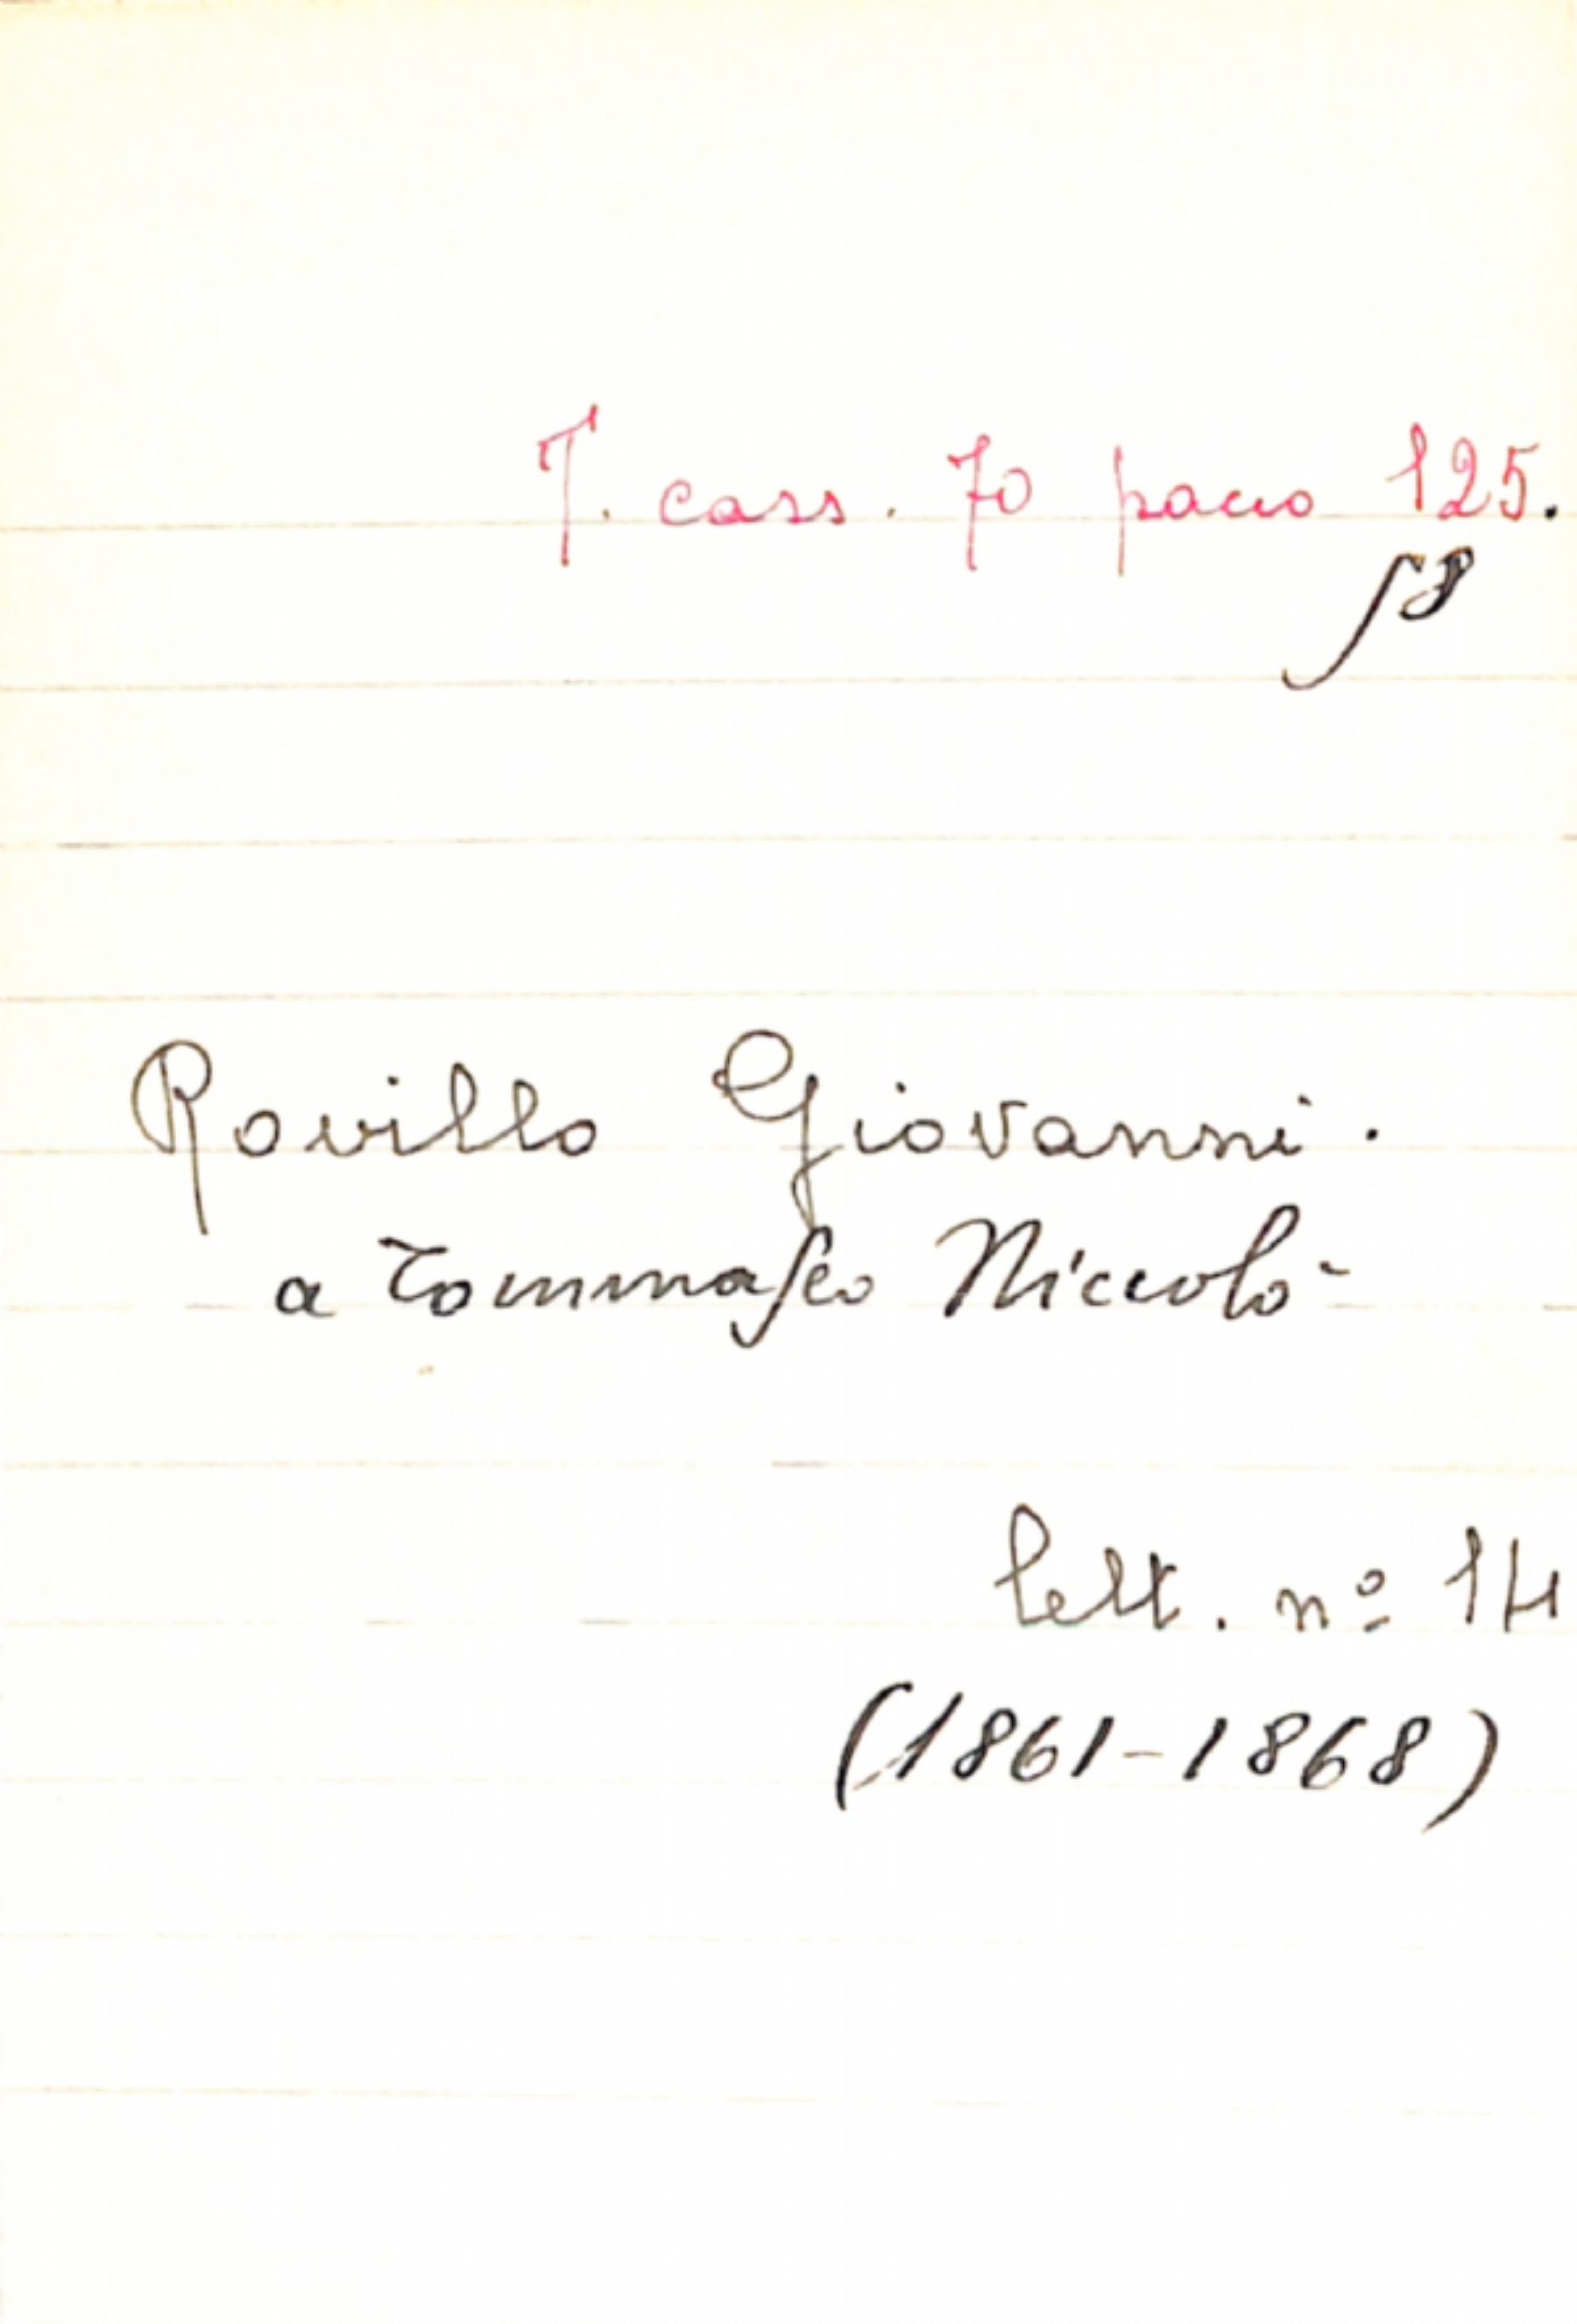 T. cass. 70 pacco 125.
58
Rovillo Giovanni.
a Tommaseo Niccolò
lett. nº 14
(1861-1868)